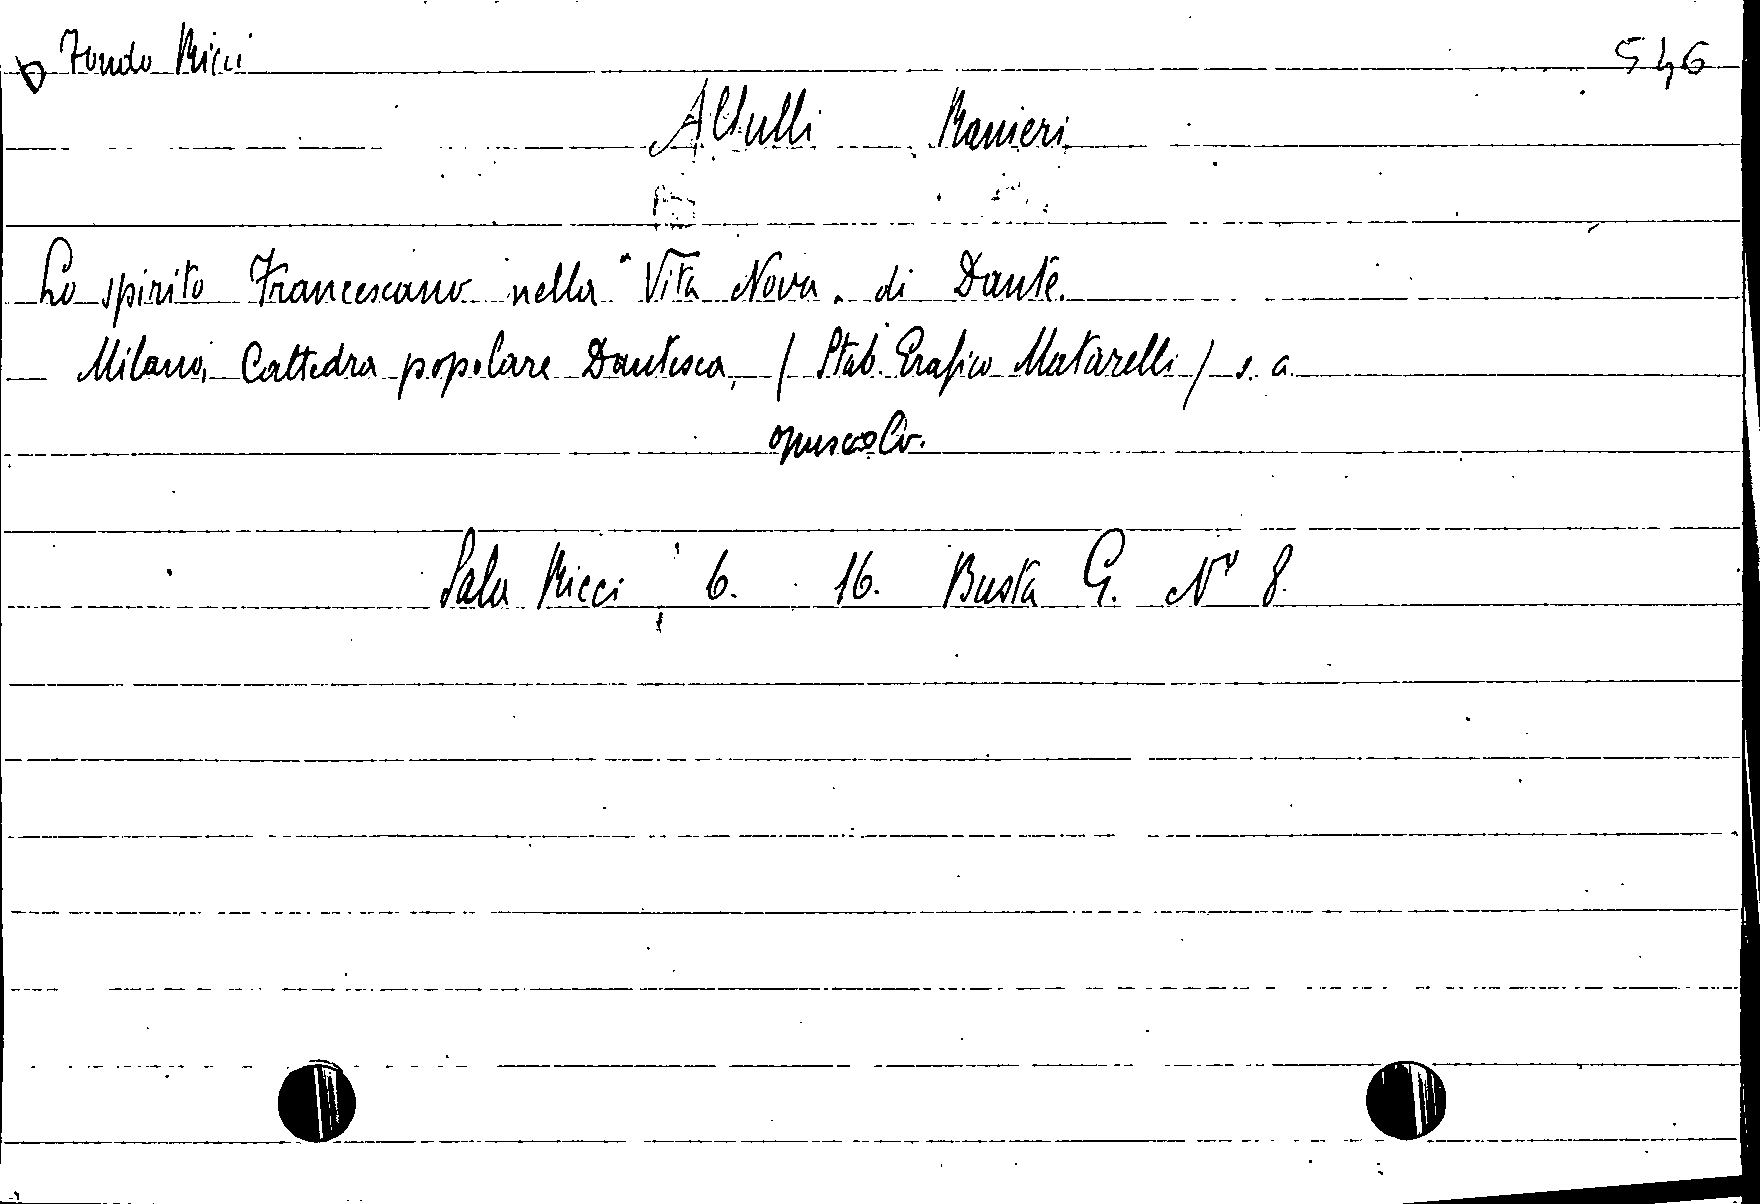 b Fondo Ricci 546
Allulli Ranieri
Lo spirito Francescano nella "Vita Nova" di Dante.
Milano, Cattedra popolare Dantesca, / Stab. Grafico Matarelli / s. a.
opuscolo.
Sala Ricci, 6. 16. Busta G. N° 8.